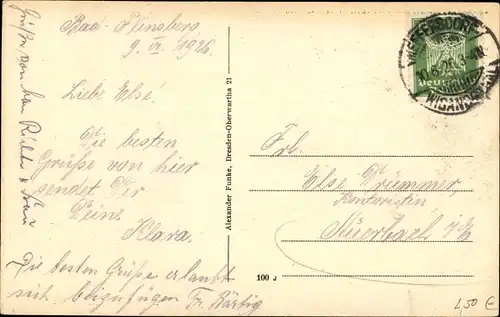 Bad-Flinsberg
9. VI. 1926.
Liebe Else!
Die besten
Grüße von hier
sendet Dir
Deine
Klara.
Die besten Grüße erlaubt
sich beizufügen Fr. Härtig
Grüße von
Frau
Alexander Funke, Dresden-Oberwartha 21
100 J
Frl.
Else Trümmer,
Kontoristin
Auerbach i/V.
1,50 €